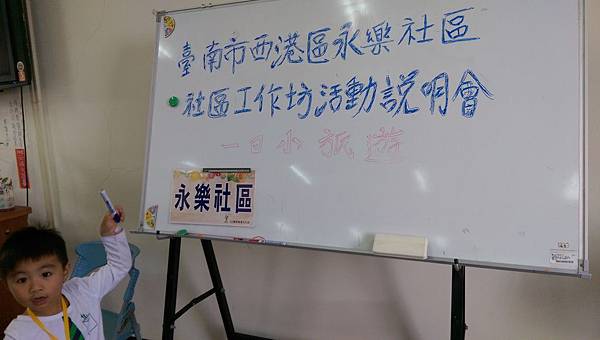 臺南市西港區永樂社區
社區工作坊活動說明會
一日小旅遊
永樂社區